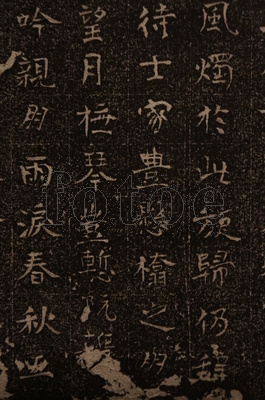 風燭於此歸仍
待士家豊懸榻之朋
望月撫琴豈慙阮籍
吟親朋雨淚春秋
fotoe